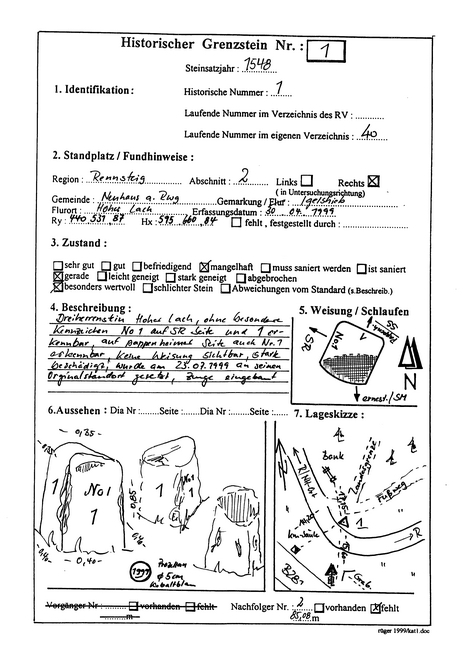 Historischer Grenzstein Nr. : 1
Steinsatzjahr : 1548
1. Identifikation : Historische Nummer : 1
Laufende Nummer im Verzeichnis des RV :
Laufende Nummer im eigenen Verzeichnis : 40
2. Standplatz / Fundhinweise :
Region : Rennsteig Abschnitt : 2 Links Rechts
( in Untersuchungsrichtung)
Gemeinde : Neuhaus a. Rwg Gemarkung / Flur : Igelshieb
Flurort : Hohe Lach Erfassungsdatum : 30 04. 1999
Ry : 440 553, 87 Hx : 595 660, 84 fehlt, festgestellt durch :
3. Zustand :
sehr gut gut befriedigend mangelhaft muss saniert werden ist saniert
gerade leicht geneigt stark geneigt abgebrochen
besonders wertvoll schlichter Stein Abweichungen vom Standard (s.Beschreib.)
4. Beschreibung :
Dreiherrenstein Hohe Lach, ohne besondere
Kennzeichen No 1 auf SR Seite und 1 er-
kennbar, auf Pappenheimer Seite auch Nr. 1
erkennbar, keine Weisung sichtbar, stark
beschädigt, wurde am 25.07.1999 an seinen
Orginalstandort gesetzt, Zunge eingebaut
5. Weisung / Schlaufen
SS
SR
No1
1
N
ernest. / SM
6.Aussehen : Dia Nr :.......Seite :......Dia Nr :.......Seite :......
7. Lageskizze :
0,35
0,85
1
No 1
1
0,40
1999
Porzellan
Ø 5cm
Kobaltblau
Bank
Landesgrenze
Fußweg
R
1
B281
Vorgänger Nr : vorhanden fehlt
Nachfolger Nr. : 2 vorhanden fehlt
85,08 m
rüger 1999/kat1.doc